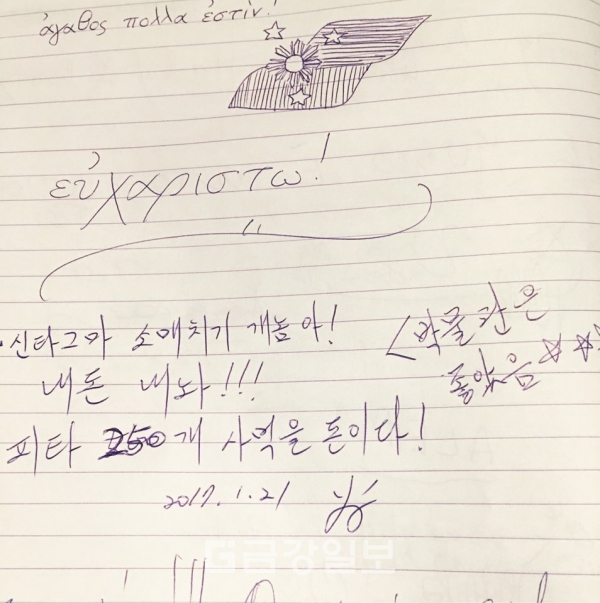 ἀγαθος πολλα ἐστίν!
εὐχαριστω!
· 신타그마 소매치기 개놈아!
내돈 내놔!!!
피타 250개 사먹을 돈이다!
<박물관은
좋았음☆☆☆
2017.1.21
금강일보